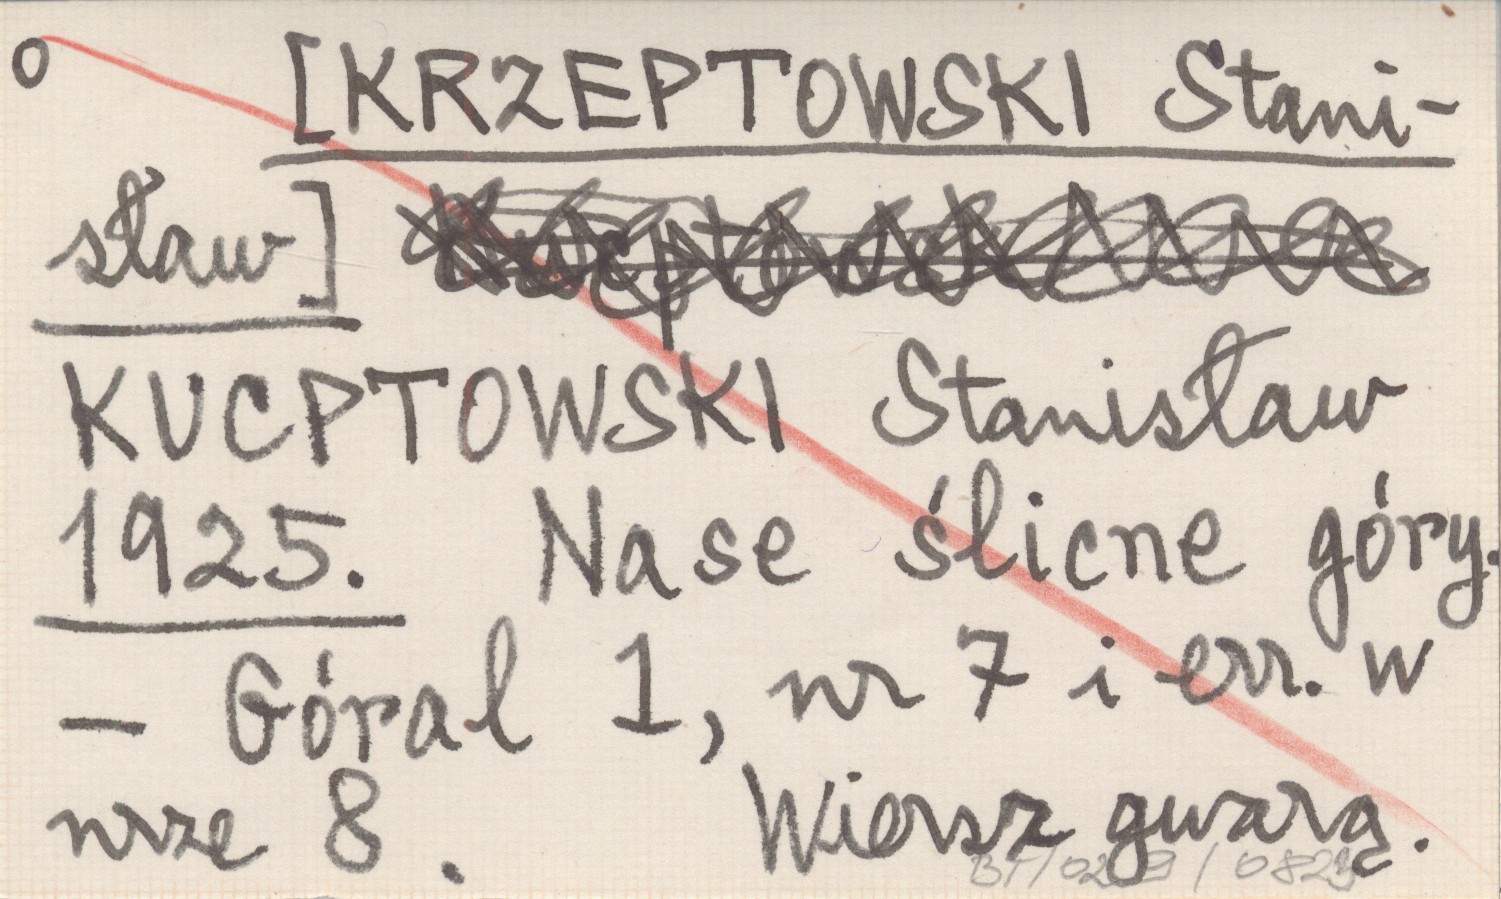 o [KRZEPTOWSKI Stani-
sław]
KUCPTOWSKI Stanisław
1925. Nase ślicne góry.
— Góral 1, nr 7 i err. w
nrze 8. Wiersz gwarą.